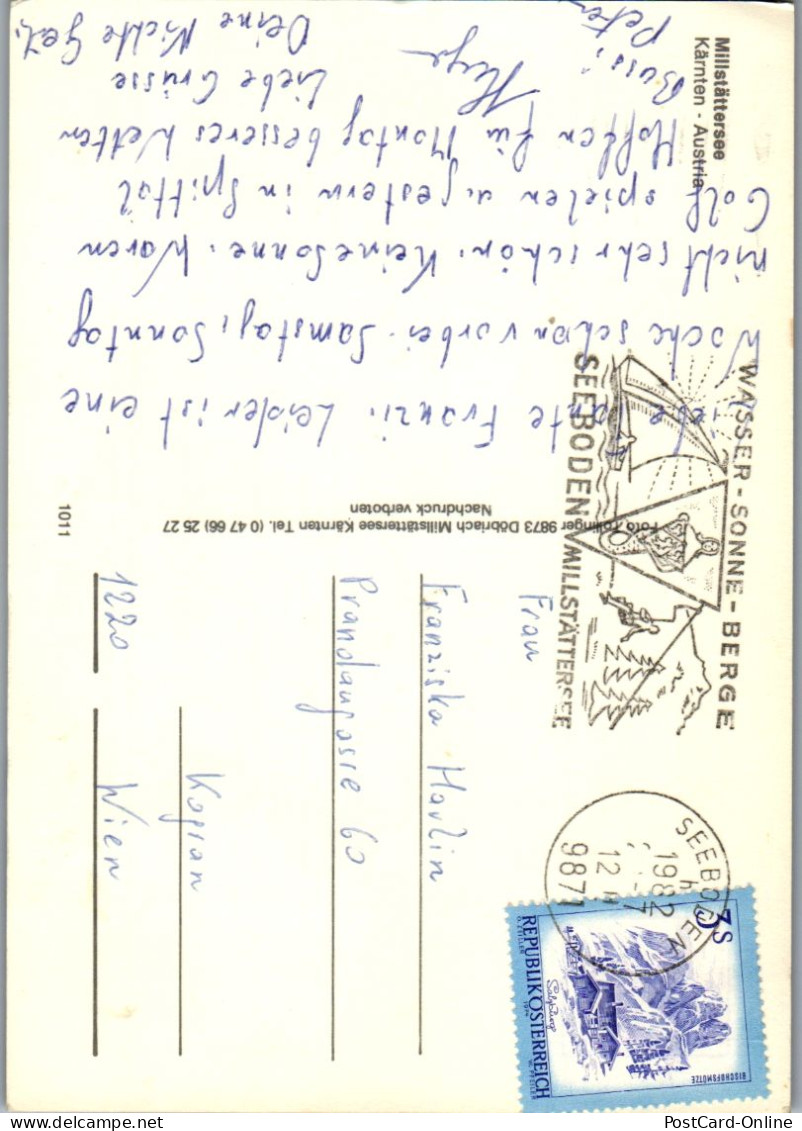 Millstättersee
Kärnten - Austria
Liebe Tante Franzi. Leider ist eine
Woche schon vorbei. Samstag, Sonntag
nicht sehr schön. Keine Sonne. Waren
Golf spielen u. gestern in Spittal
Hoffen für Montag besseres Wetter
Liebe Grüsse
Deine Nichte
Bussi
Peter
1011
Foto Tollinger 9873 Döbriach Millstättersee Kärnten Tel. (0 47 66) 25 27
Nachdruck verboten
WASSER - SONNE - BERGE
SEEBODEN/MILLSTÄTTERSEE
SEEBODEN
1982
12
9871
3S
REPUBLIK ÖSTERREICH
Salzburg
BISCHOFSMÜTZE
1974
Frau
Franziska Havlin
Prandaugasse 60
Kagran
1220 Wien
PostCard-Online.com